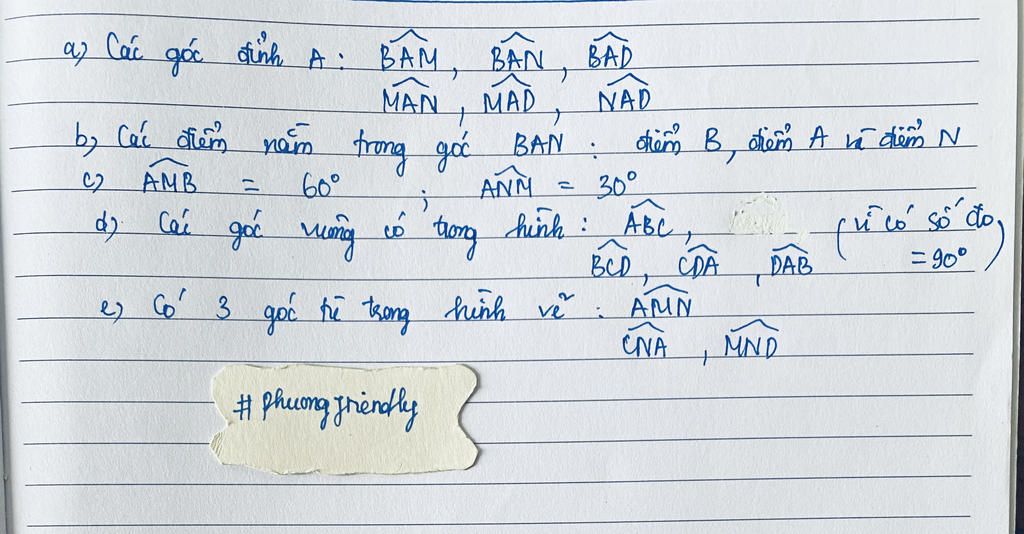 a) Các góc đỉnh A : BAM, BAN, BAD
MAN, MAD, NAD
b) Các điểm nằm trong góc BAN : điểm B, điểm A và điểm N
c) AMB = 60° ; ANM = 30°
d). Các góc vuông có trong hình : ABC, (vì có số đo
BCD, CDA, DAB = 90°)
e) Có 3 góc tù trong hình vẽ : AMN
CNA, MND
# phuongfriendly